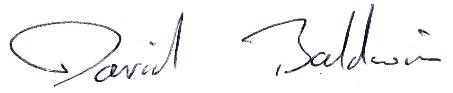 David Baldwin